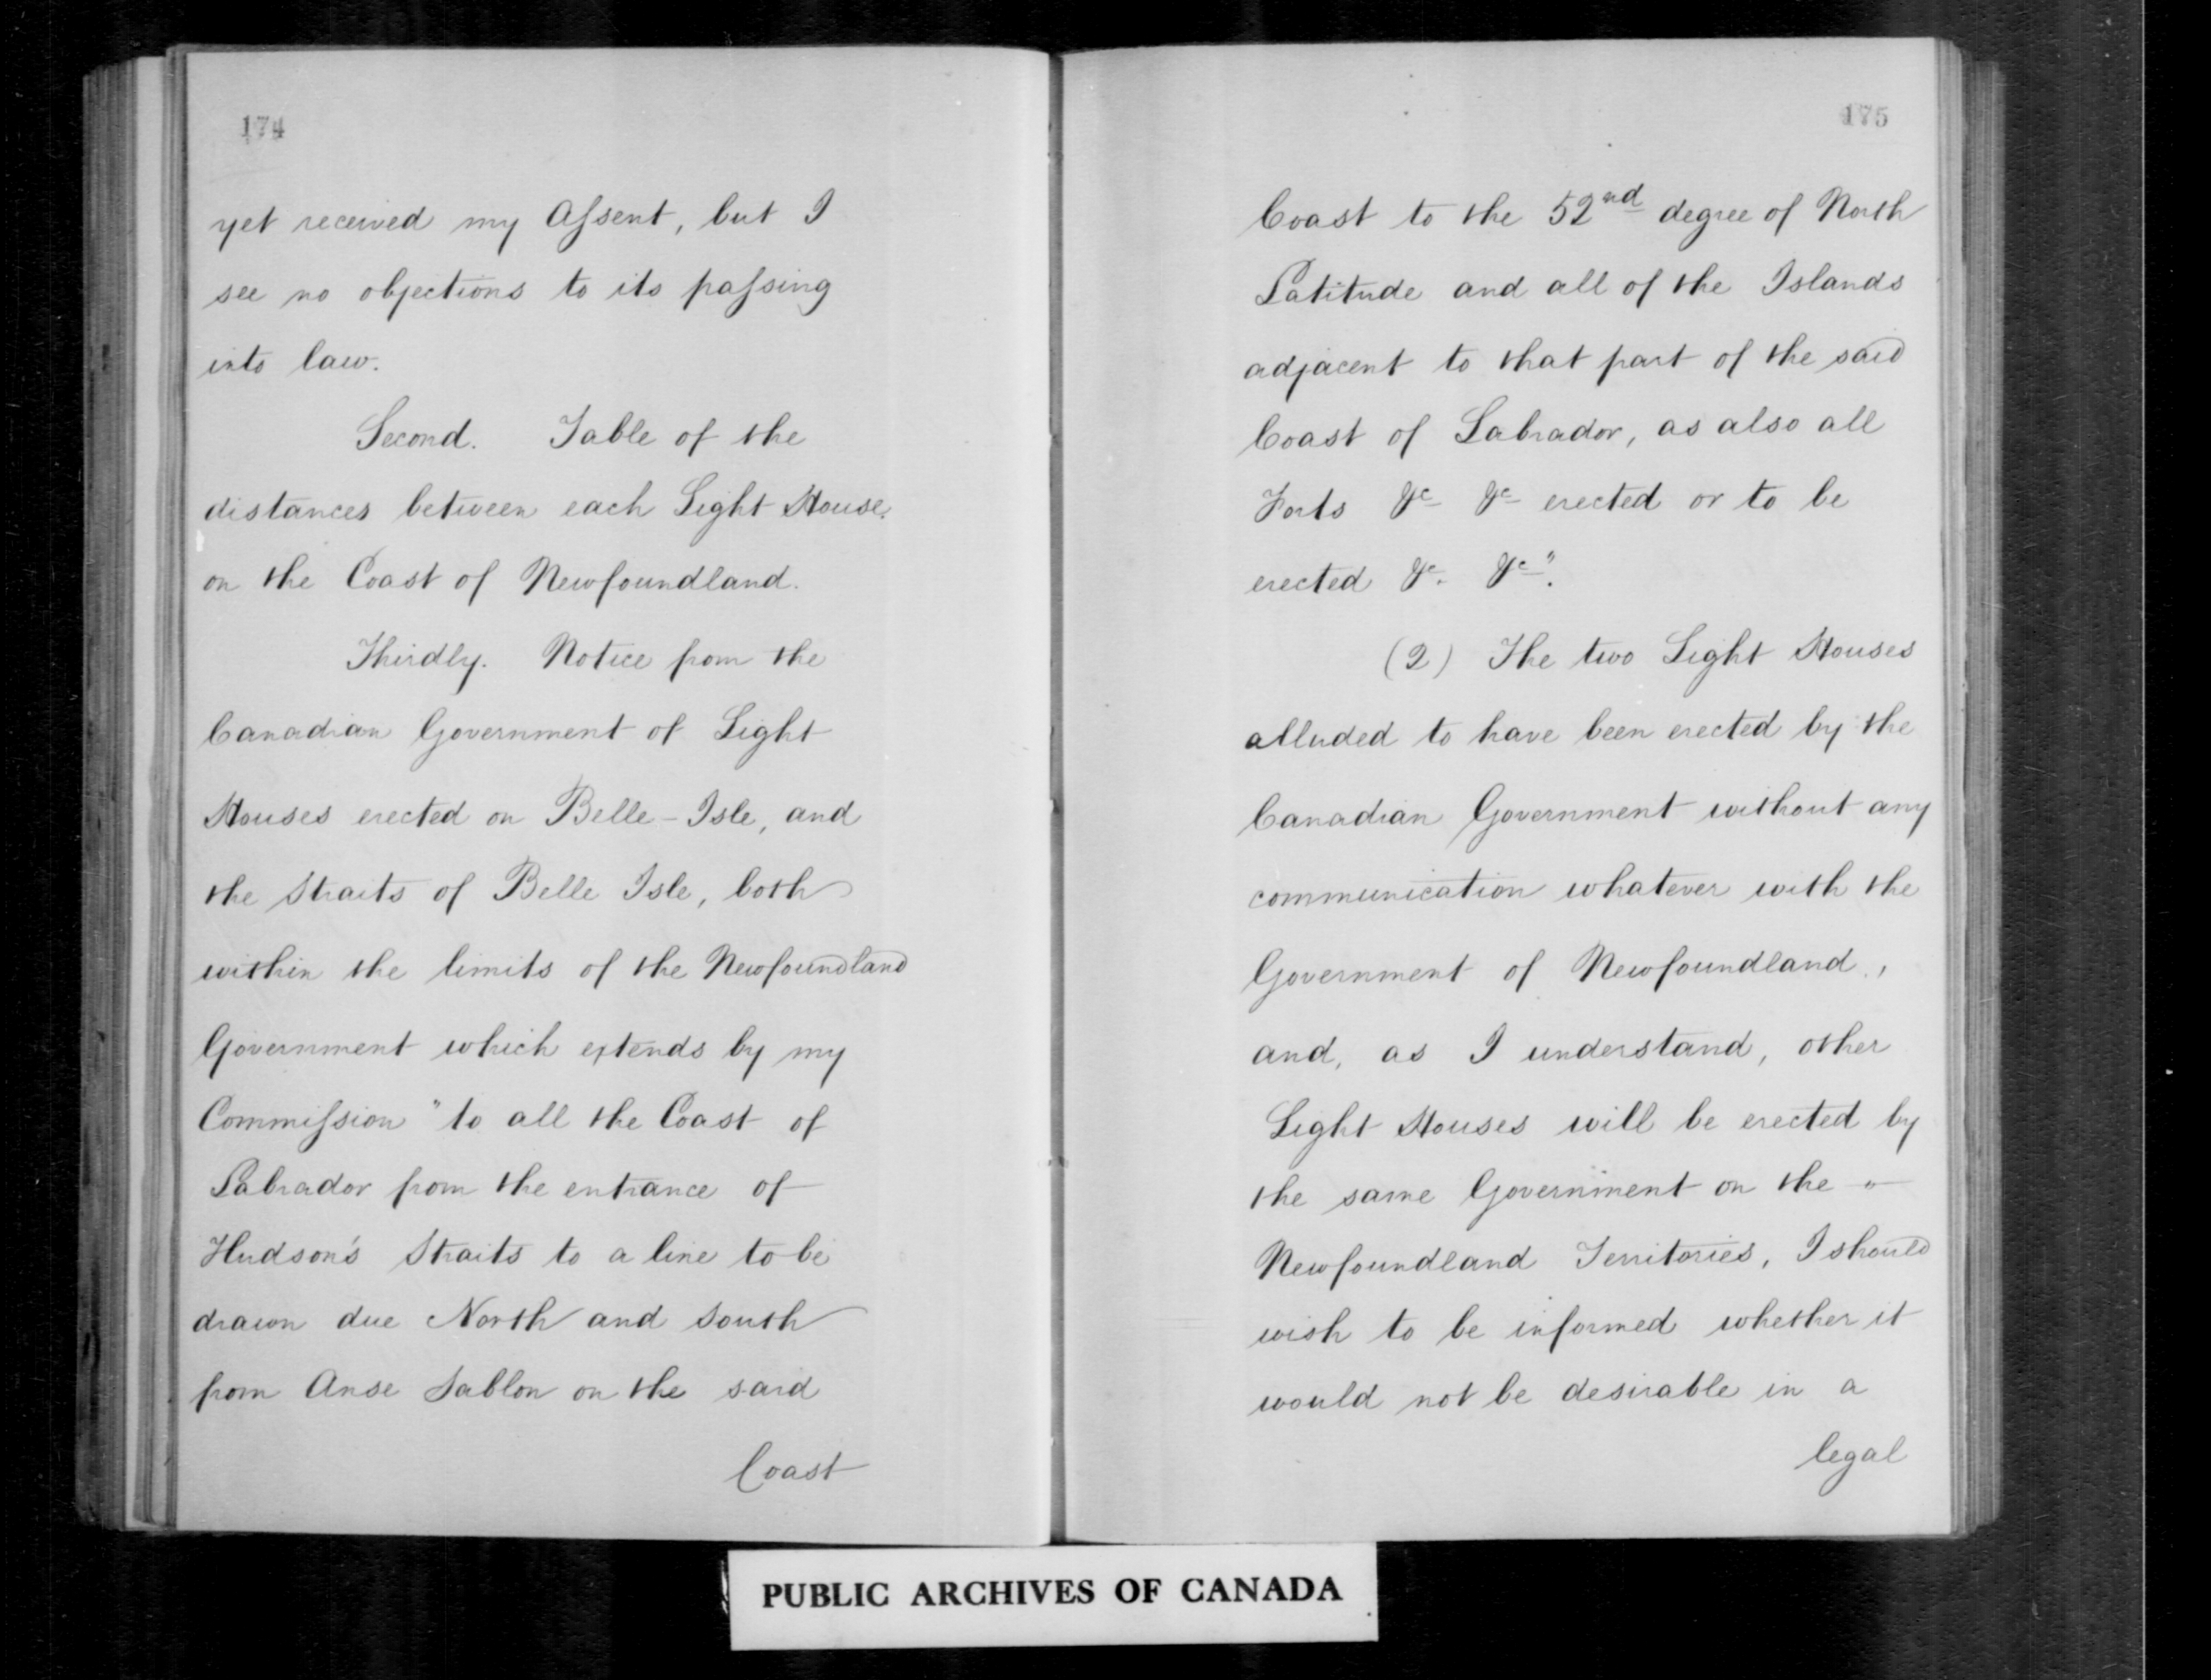 174
yet received my Assent, but I
see no objections to its passing
into law.
Second. Table of the
distances between each Light House
on the Coast of Newfoundland.
Thirdly. Notice from the
Canadian Government of Light
Houses erected on Belle-Isle, and
the Straits of Belle Isle, both
within the limits of the Newfoundland
Government which extends by my
Commission "to all the Coast of
Labrador from the entrance of
Hudson's Straits to a line to be
drawn due North and South
from Anse Sablon on the said
Coast
175
Coast to the 52nd degree of North
Latitude and all of the Islands
adjacent to that part of the said
Coast of Labrador, as also all
Forts &c &c erected or to be
erected &c. &c".
(2) The two Light Houses
alluded to have been erected by the
Canadian Government without any
communication whatever with the
Government of Newfoundland,
and, as I understand, other
Light Houses will be erected by
the same Government on the
Newfoundland Territories, I should
wish to be informed whether it
would not be desirable in a
legal
PUBLIC ARCHIVES OF CANADA